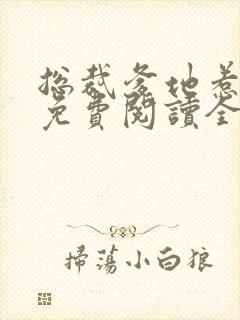 總裁爹地惹
免費閱讀全
掃蕩小白狼